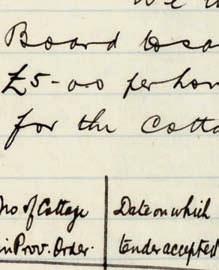 Board
£5-0-0 per
for the Cotta
No of Cottage
in Prov. Order.
Date on which
tender accepted